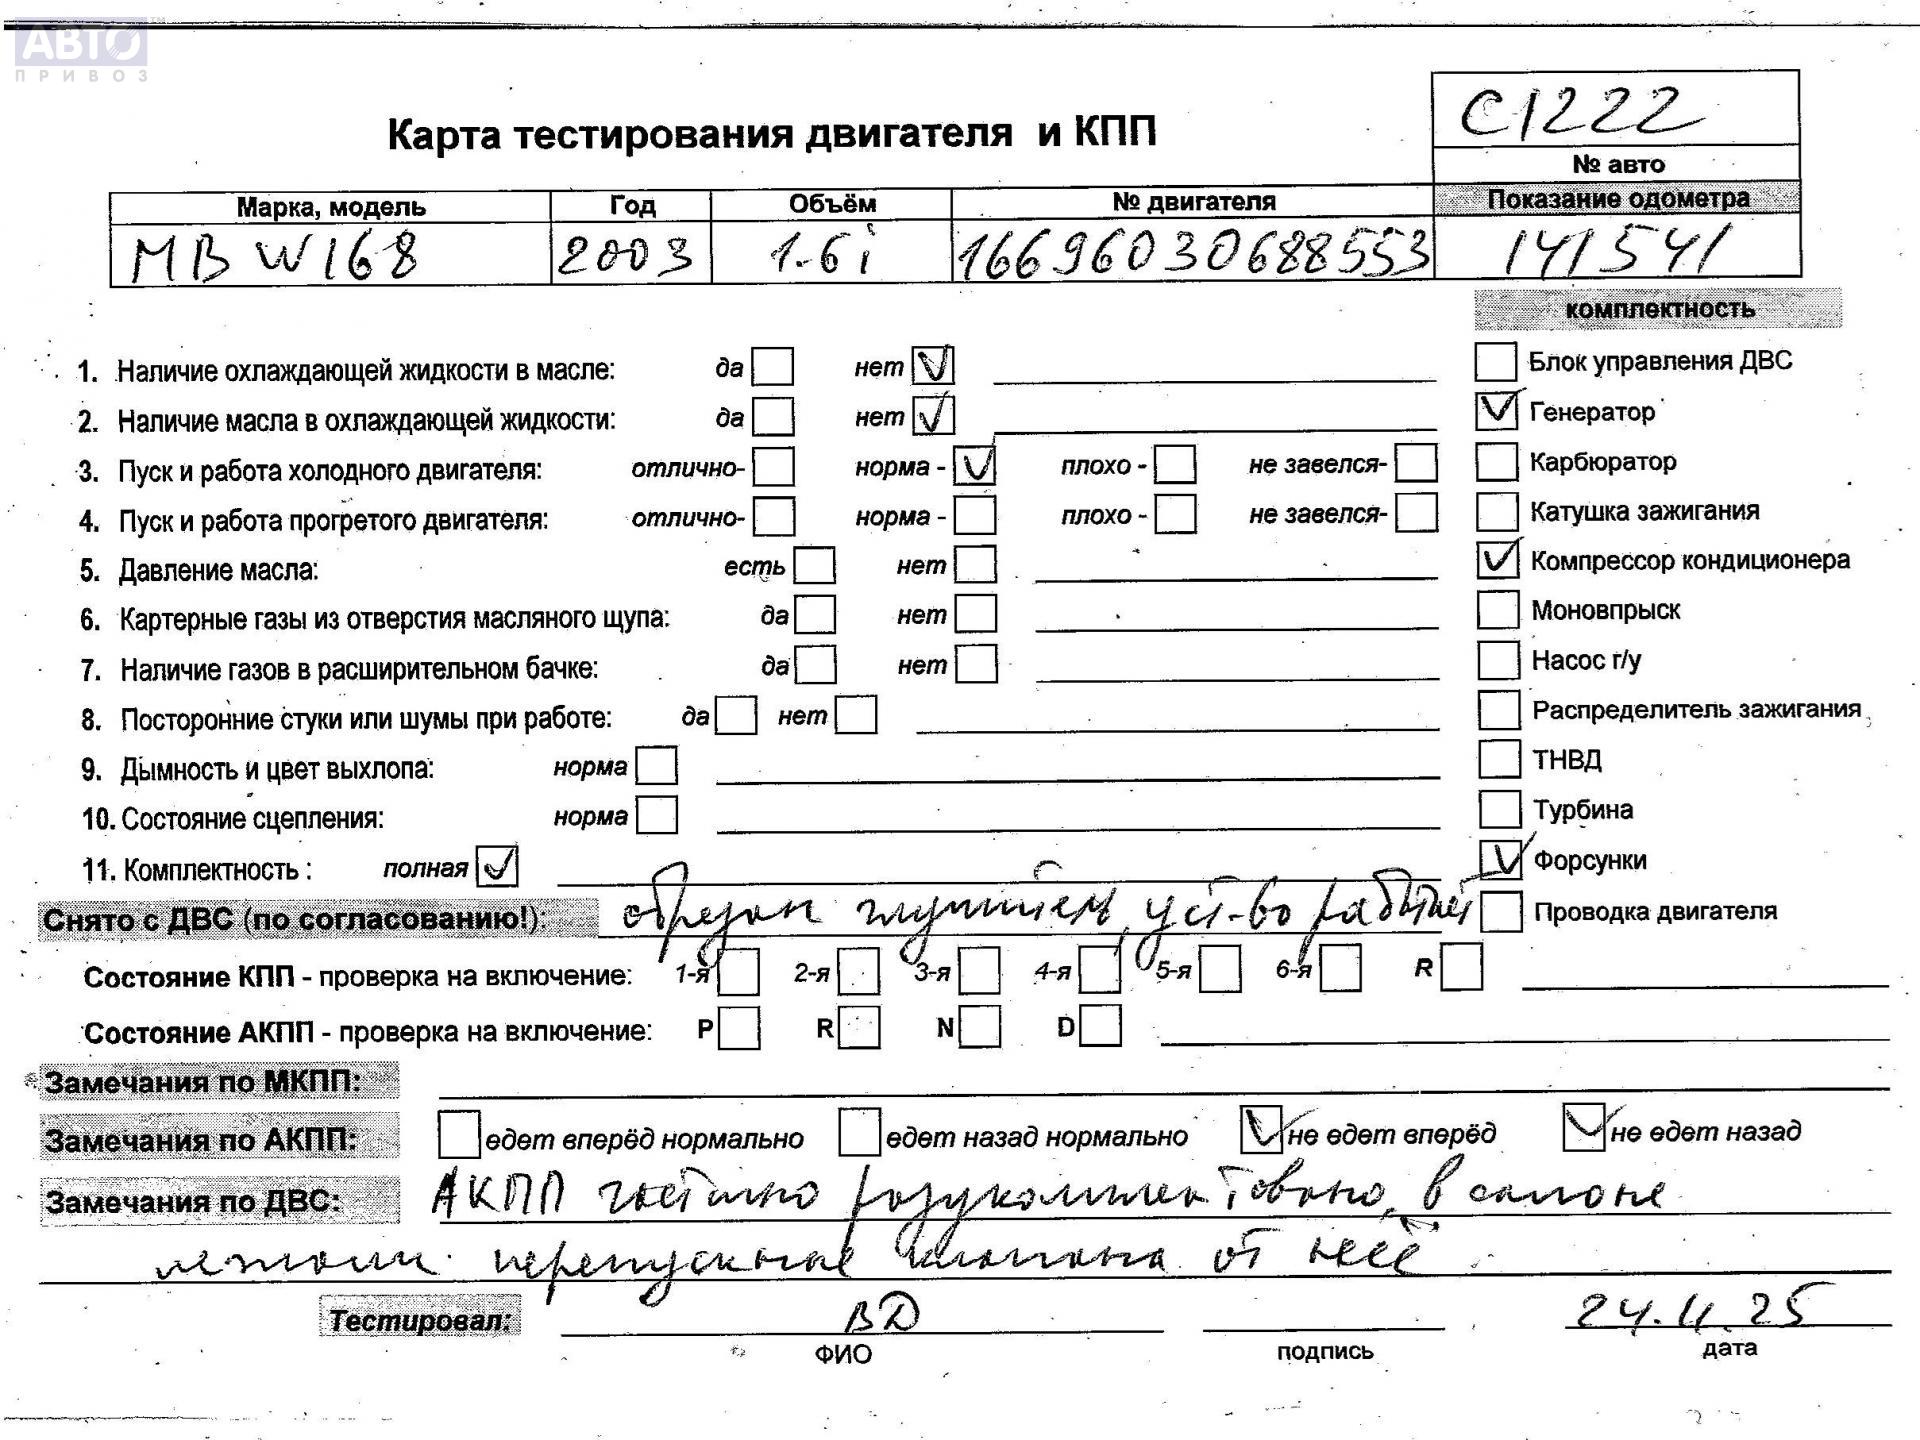 АВТО
ПРИВОЗ
С1222
Карта тестирования двигателя и КПП
№ авто
Марка, модель Год Объём № двигателя Показание одометра
MB W168 2003 1.6i 16696030688553 141541
комплектность
1. Наличие охлаждающей жидкости в масле: да нет
Блок управления ДВС
2. Наличие масла в охлаждающей жидкости: да нет
Генератор
3. Пуск и работа холодного двигателя: отлично- норма - плохо - не завелся-
Карбюратор
4. Пуск и работа прогретого двигателя: отлично- норма - плохо - не завелся-
Катушка зажигания
5. Давление масла: есть нет
Компрессор кондиционера
6. Картерные газы из отверстия масляного щупа: да нет
Моновпрыск
7. Наличие газов в расширительном бачке: да нет
Насос г/у
8. Посторонние стуки или шумы при работе: да нет
Распределитель зажигания
9. Дымность и цвет выхлопа: норма
ТНВД
10. Состояние сцепления: норма
Турбина
11. Комплектность : полная
Форсунки
Снято с ДВС (по согласованию!): обрезан глушитель, уст-во работает
Проводка двигателя
Состояние КПП - проверка на включение: 1-я 2-я 3-я 4-я 5-я 6-я R
Состояние АКПП - проверка на включение: P R N D
Замечания по МКПП:
Замечания по АКПП: едет вперёд нормально едет назад нормально не едет вперёд не едет назад
Замечания по ДВС: АКПП частично разукомплектована, в салоне
лежали перепускные клапана от неё
Тестировал: ВД 24.11.25
ФИО подпись дата